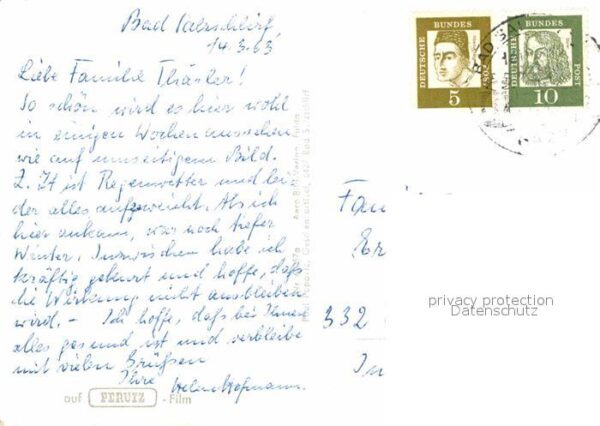 Bad Salzschlirf,
14.3.63.
Liebe Familie
So schön wird es hier wohl
in einigen Wochen aussehen
wie auf umseitigem Bild.
Z. Zt ist Regenwetter und lei-
der alles aufgeweicht. Als ich
hier ankam, war noch tiefer
Winter. Inzwischen habe ich
kräftig gekurt und hoffe, daß
die Wirkung nicht ausbleiben
wird. – Ich hoffe, daß bei Ihnen
alles gesund ist und verbleibe
mit vielen Grüßen
Ihre Hofmann.
auf PERUTZ - Film
DEUTSCHE BUNDES POST
5
DEUTSCHE BUNDES POST
10
Fam
332
privacy protection
Datenschutz